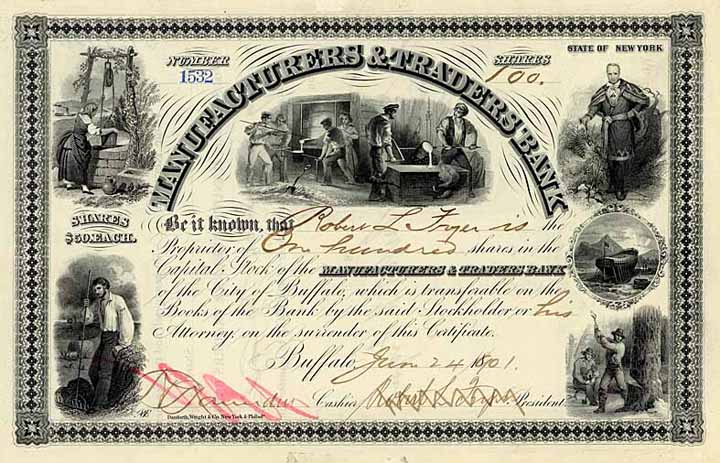 NUMBER
1532
SHARES
100.
STATE OF NEW YORK
MANUFACTURERS & TRADERS BANK
SHARES
$50. EACH.
Be it known, that Robert L Fryer is the
Proprietor of One hundred shares in the
Capital Stock of the MANUFACTURERS & TRADERS BANK
of the City of Buffalo, which is transferable on the
Books of the Bank by the said Stockholder or his
Attorney, on the surrender of this Certificate.
Buffalo, Jan 24 1901.
Cashier Robert L Fryer President
Danforth, Wright & Co. New York & Philad<sup>a</sup>